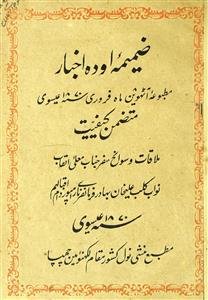 ضمیمۂ اودہ اخبار
مطبوعۂ آٹھوین ماہ فروری ۱۸۷۰ عیسوی
متضمن کیفیت
ملاقات و سوانح سفر جناب معلی القاب
نواب کلب علیخان بہادر فرمانفرمای رامپور دام اقبالہم
۱۸۷۰ عیسوی
مطبع منشی نول کشور مقام لکھنؤ مین چھپا